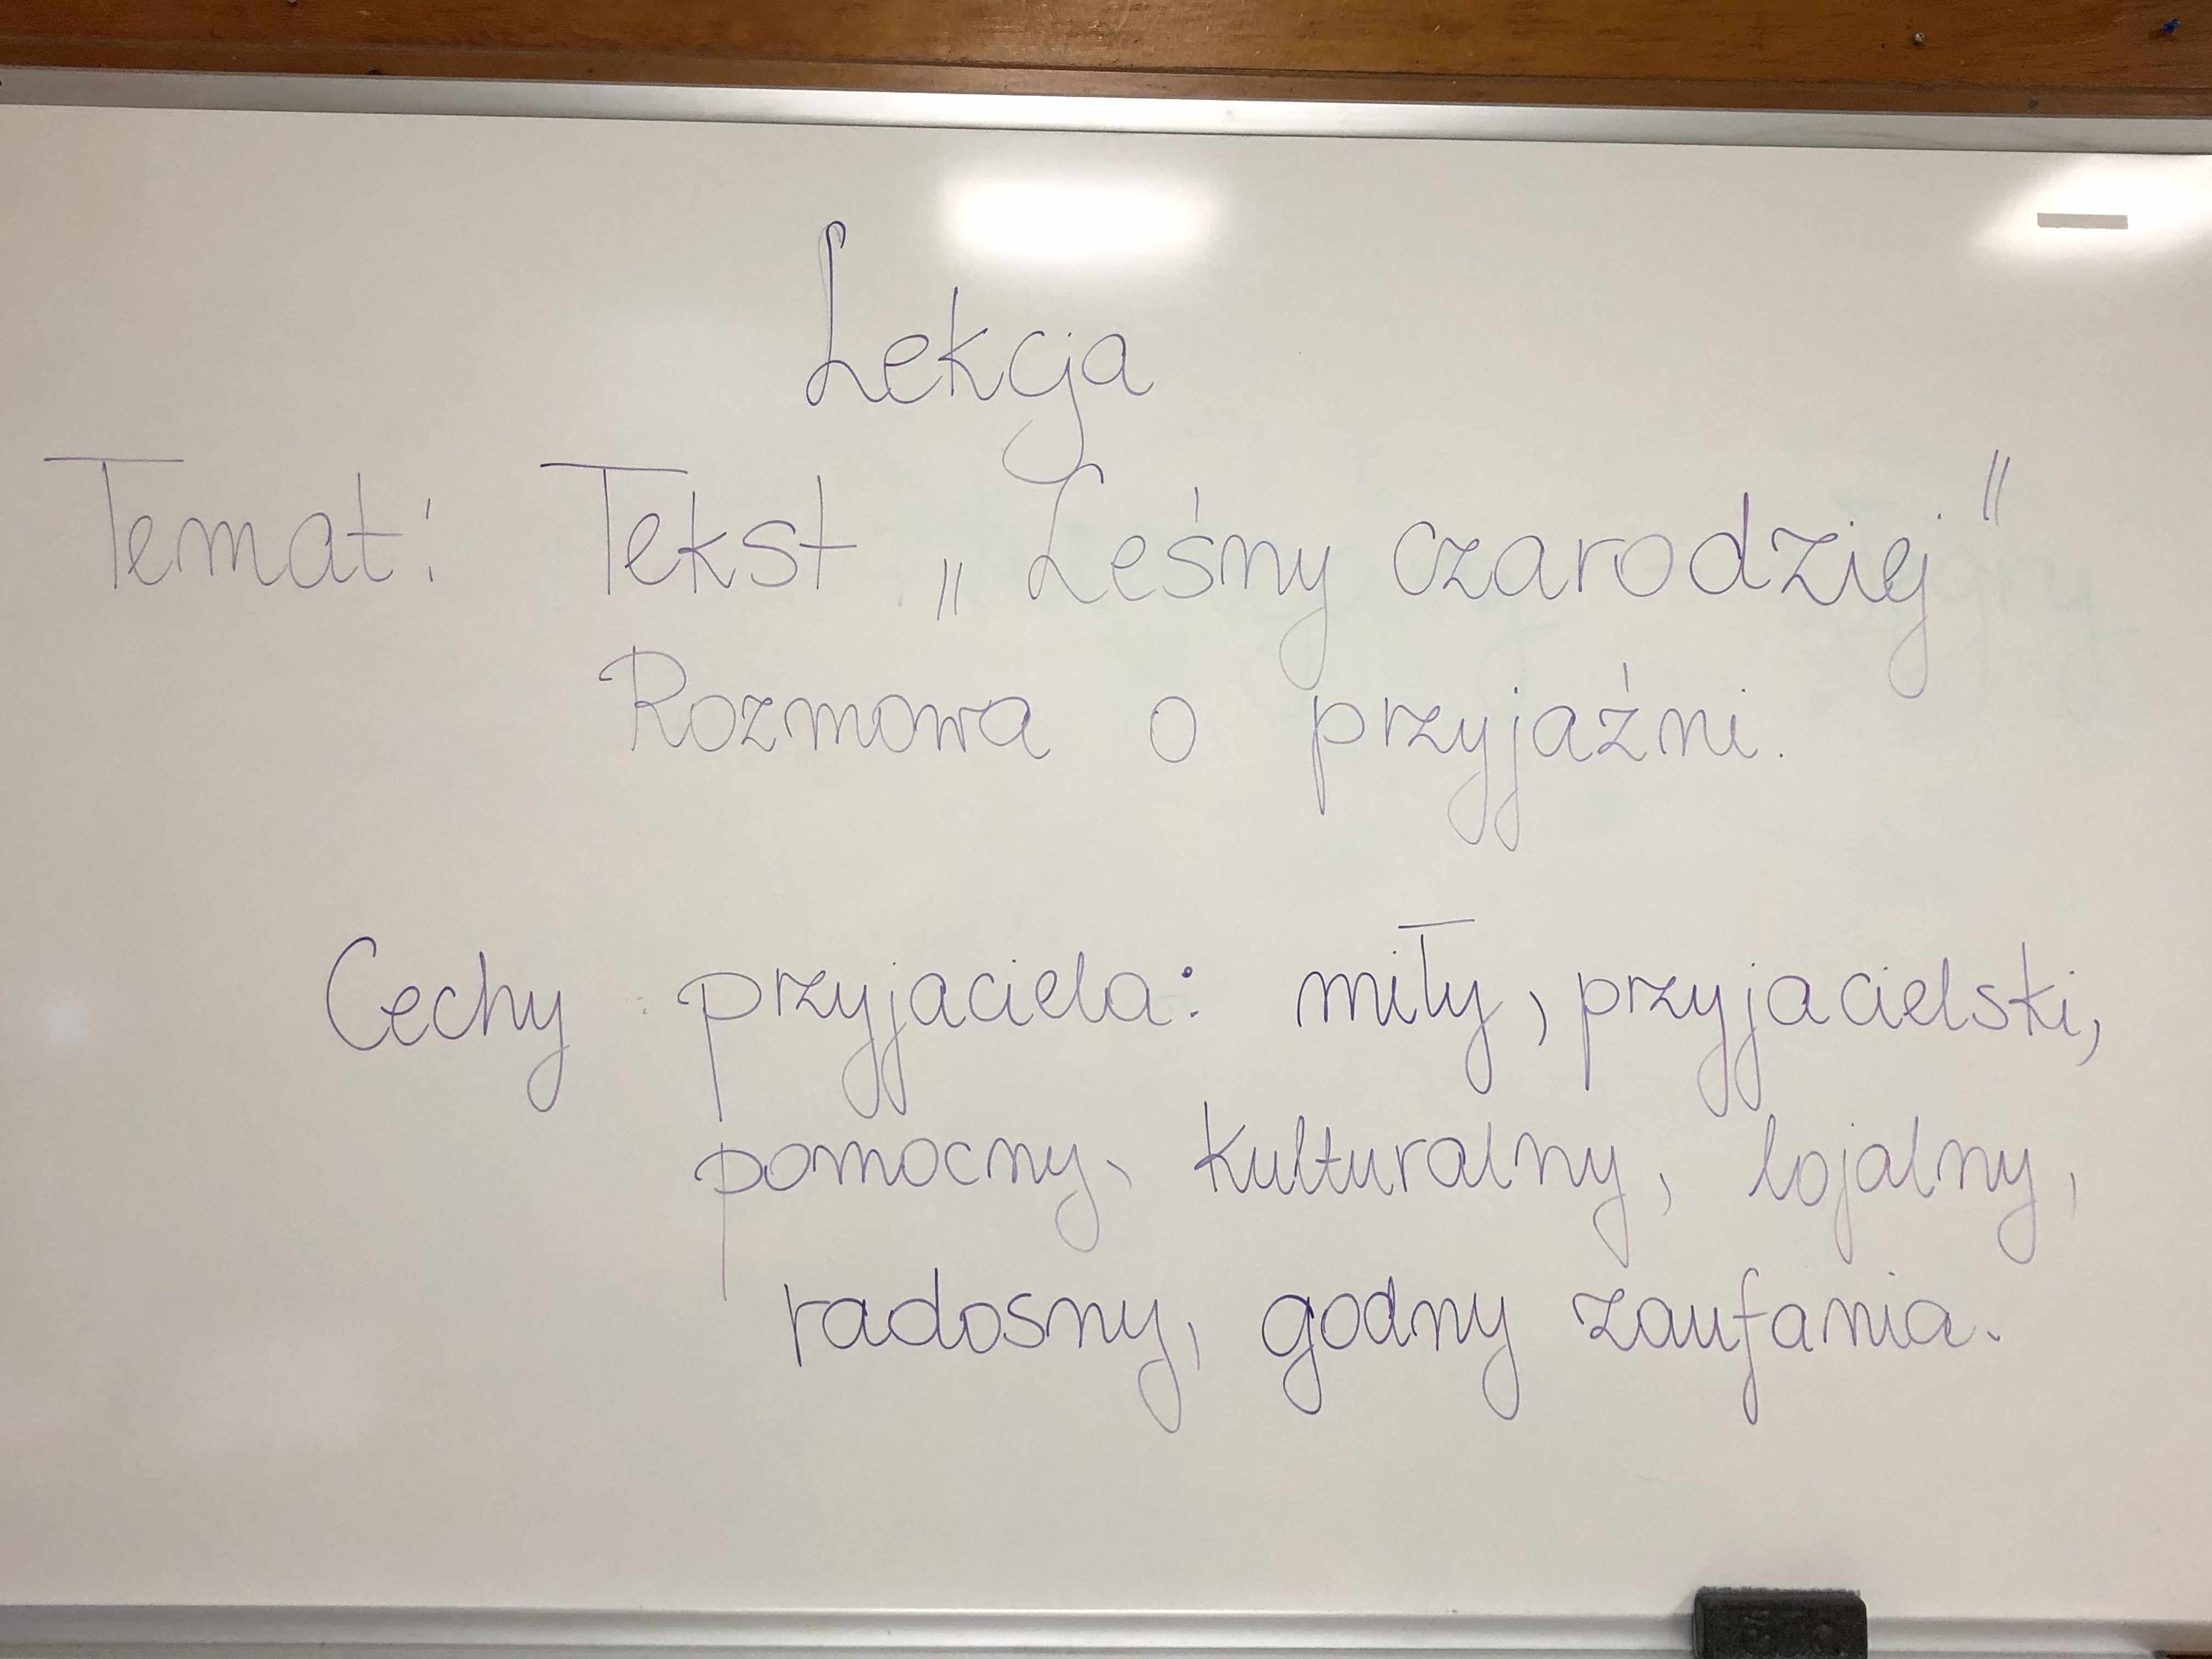 Lekcja
Temat: Tekst „Leśny czarodziej"
Rozmowa o przyjaźni.
Cechy przyjaciela: miły, przyjacielski,
pomocny, kulturalny, lojalny,
radosny, godny zaufania.